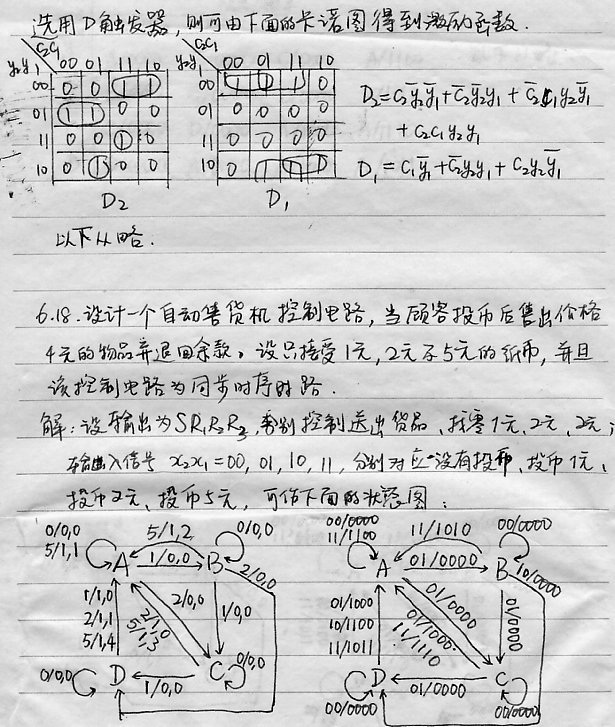 选用D触发器,则可由下面的卡诺图得到激励函数.
C2C1
y2y1 00 01 11 10
00 0 0 1 1
01 1 1 0 0
11 0 0 1 0
10 0 1 0 0
D2
C2C1
y2y1 00 01 11 10
00 0 1 1 0
01 0 0 0 0
11 0 0 0 0
10 0 1 1 1
D1
D2=C2y̅2y̅1+C̅2y̅2y1+C̅2C1y2y̅1
+C2C1y2y1
D1=C1y̅1+C̅2y2y1+C2y2y̅1
以下从略.
6.18.设计一个自动售货机控制电路,当顾客投币后售出价格
4元的物品并退回余款。设只接受1元,2元及5元的纸币,并且
该控制电路为同步时序电路.
解:设输出为SR1R2R3,分别控制送出货品、找零1元、2元、2元;
输入信号x2x1=00,01,10,11,分别对应没有投币、投币1元、
投币2元、投币5元,可作下面的状态图:
0/0,0
5/1,1
A
5/1,2
1/0,0
B
0/0,0
2/0,0
1/1,0
2/1,1
5/1,4
2/1,0
5/1,3
2/0,0
1/0,0
0/0,0
D
1/0,0
C
0/0,0
00/0000
11/1100
A
11/1010
01/0000
B
00/0000
10/0000
01/1000
10/1100
11/1011
01/0000
01/1000
11/1110
01/0000
D
01/0000
C
00/0000
00/0000